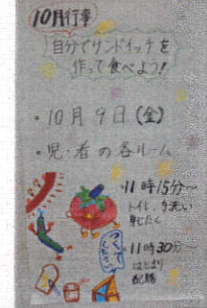 10月行事
自分でサンドイッチを
作って食べよう!
・10月9日(金)
・児・者の各ルーム
・11時15分~
トイレ、手洗い
身じたく
つくってたべてね
・11時30分~
はじまり
配膳